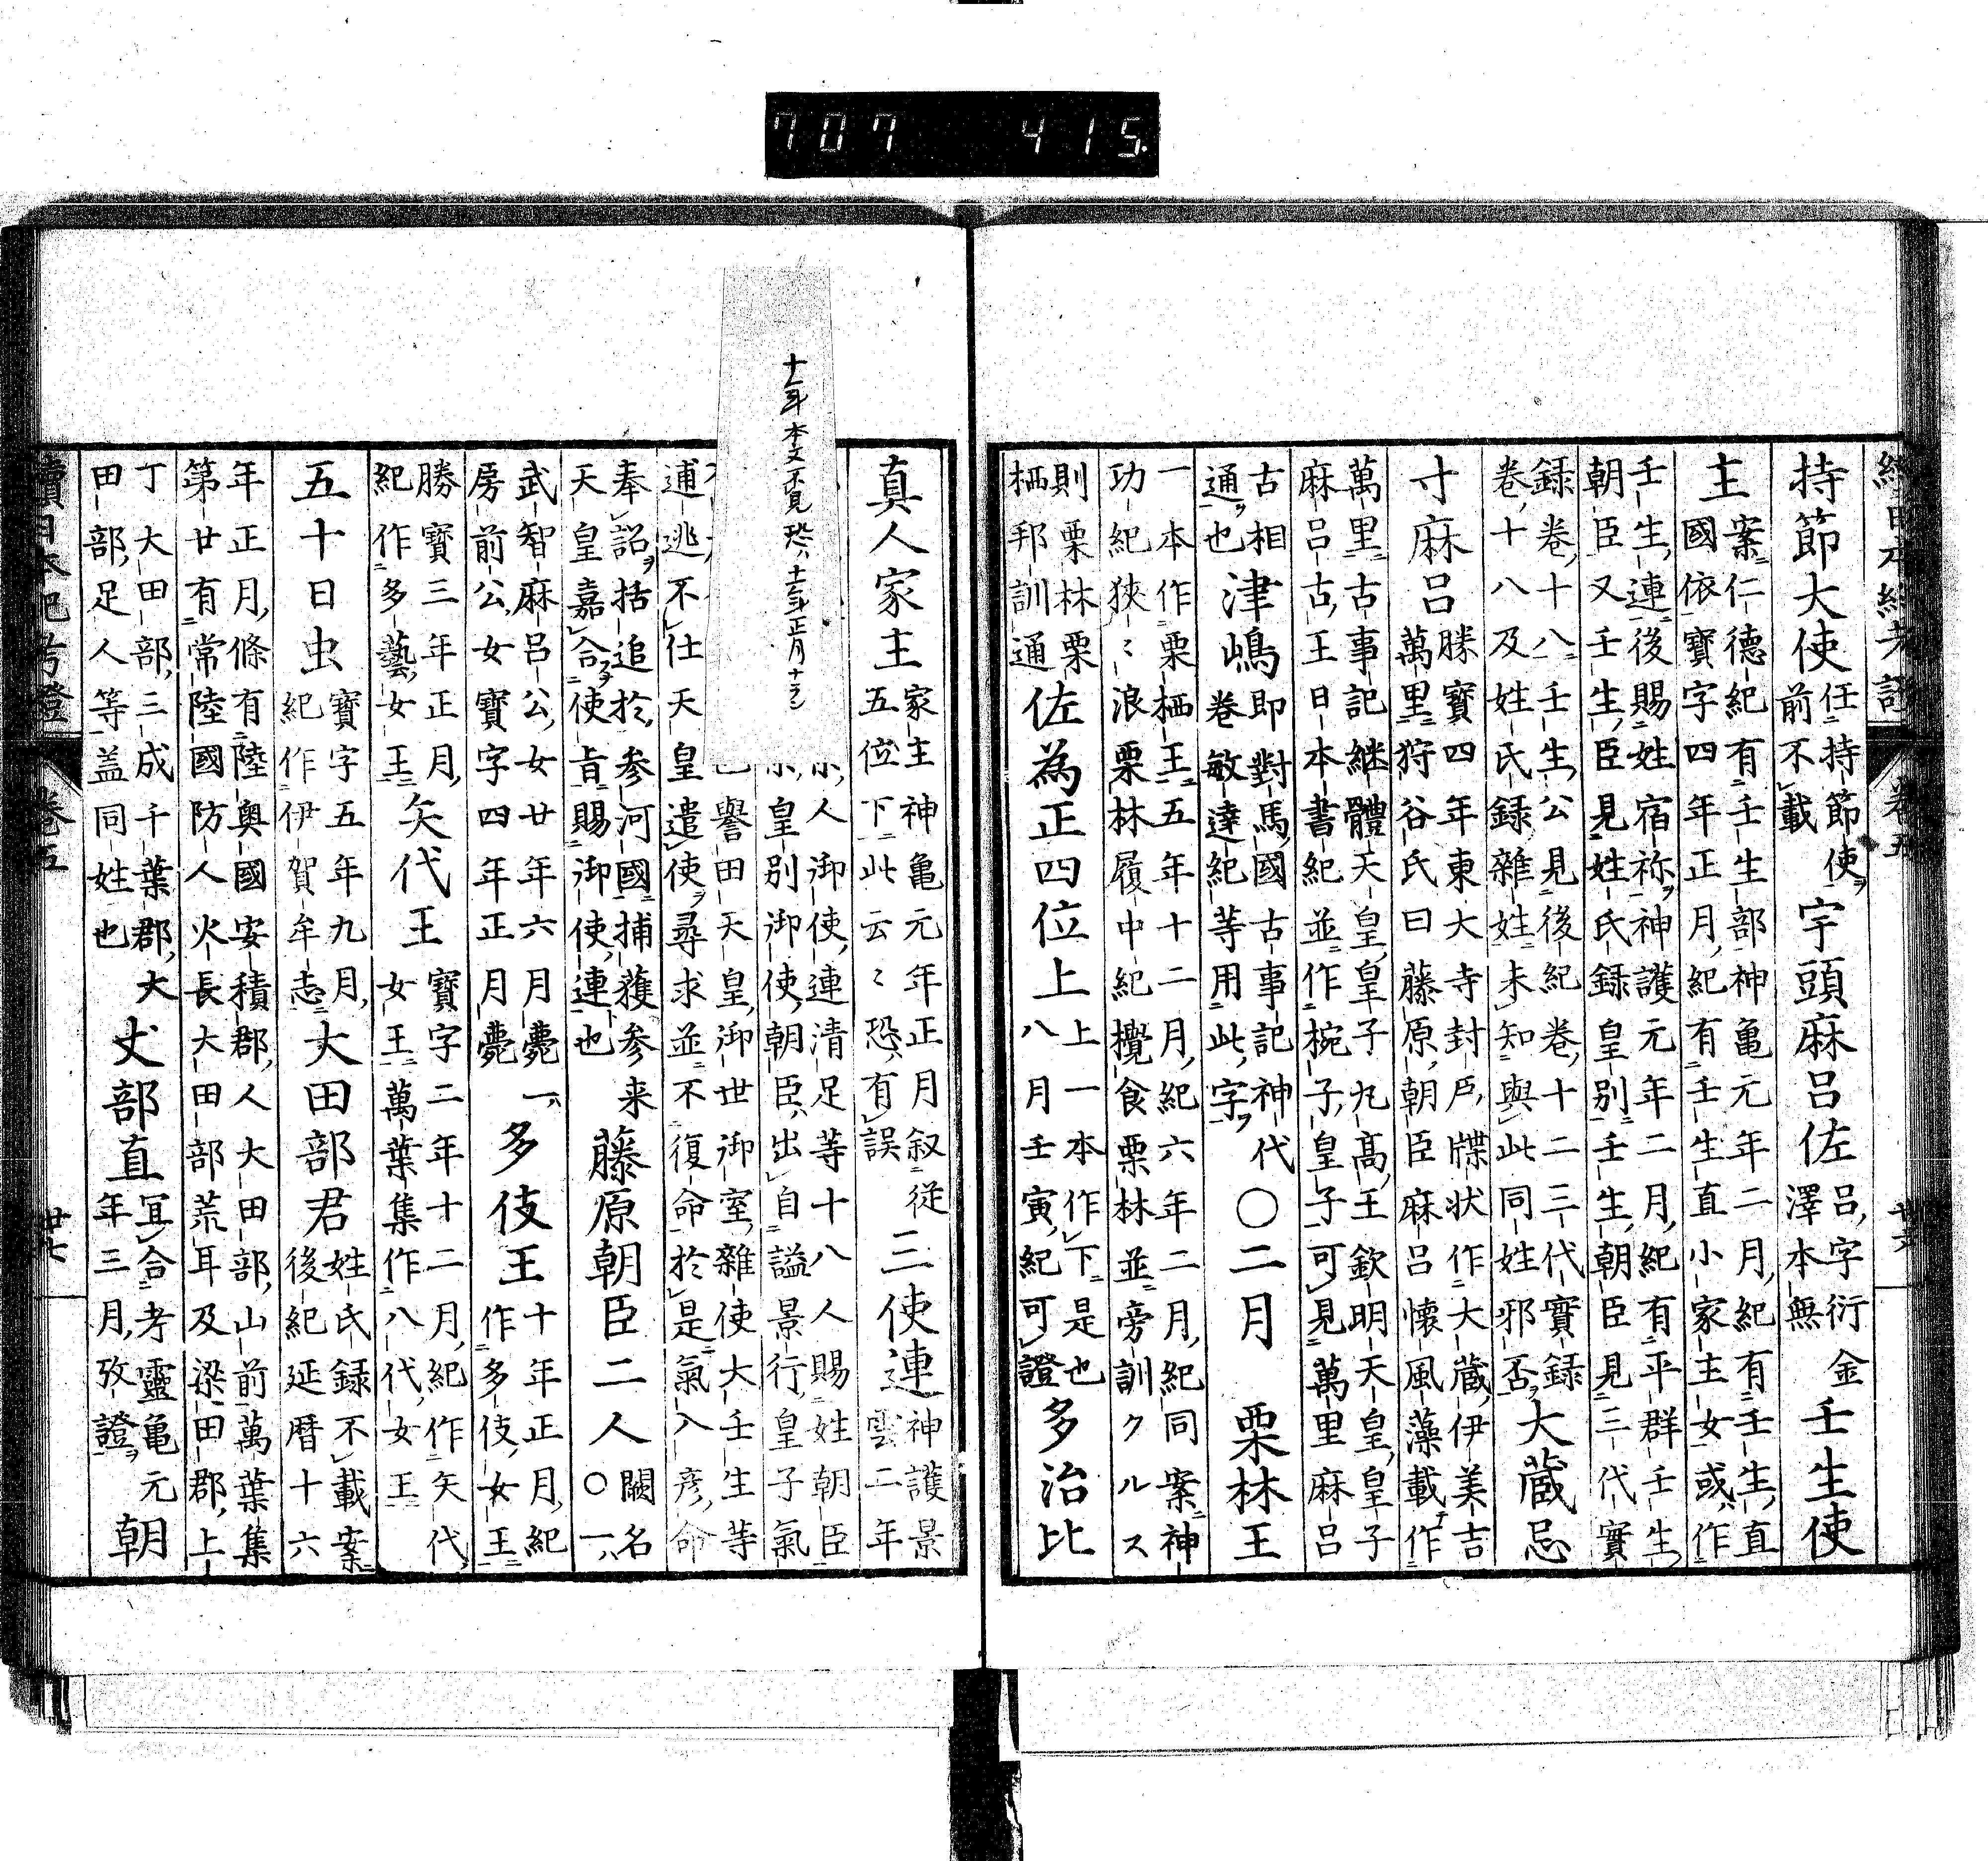 707 415
續日本紀考證 卷五 廿六
持節大使 任持節使 前不載 宇頭麻呂佐 呂字衍金 澤本無 壬生使
主 案仁德紀有壬生部神亀元年二月紀有壬生直 國依寶字四年正月紀有壬生直小家主女或作
壬生連後賜姓宿祢神護元年二月紀有平群壬生 朝臣又壬生臣見姓氏録皇別壬生朝臣見三代實
録卷十八壬生公見後紀卷十二三代實録 卷十八及姓氏録雜姓未知與此同姓邪否 大蔵忌
寸麻呂 勝寶四年東大寺封戸牒状作大蔵伊美吉 萬里狩谷氏曰藤原朝臣麻呂懐風藻載作
萬里古事記継體天皇皇子丸髙王欽明天皇皇子 麻呂古王日本書紀並作椀子皇子可見萬里麻呂
古相 通也 津嶋 即對馬國古事記神代 卷敏達紀等用此字 ○二月 栗林王
一本作栗栖王五年十二月紀六年二月紀同案神 功紀狹〻浪栗林履中紀攪食栗林並旁訓クルス
則栗林栗 栖邦訓通 佐為正四位上 上一本作下是也 八月壬寅紀可證 多治比
真人家主 家主神亀元年正月叙従 五位下此云〻恐有誤 三使連 神護景 雲二年
人御使連清足等十八人賜姓朝臣 皇別御使朝臣出自謚景行皇子氣
譽田天皇御世御室雜使大壬生等 逋逃不仕天皇遣使尋求並不復命於是氣入彦命
奉詔括追於参河國捕獲参来 天皇嘉合使旨賜御使連也 藤原朝臣二人 闕名 ○一
武智麻呂公女廿年六月薨一 房前公女寶字四年正月薨 多伎王 十年正月紀 作多伎女王
勝寶三年正月 紀作多藝女王 矢代王 寶字二年十二月紀作矢代 女王萬葉集作八代女王
五十日虫 寶字五年九月 紀作伊賀牟志 大田部君 姓氏録不載案 後紀延暦十六
年正月條有陸奥國安積郡人大田部山前萬葉集 第廿有常陸國防人火長大田部荒耳及梁田郡上
丁大田部三成千葉郡大 田部足人等盖同姓也 丈部直 冝合考靈亀元 年三月攷證 朝
續日本紀考證 卷五 廿七
十一年本文不見恐十二年正月十